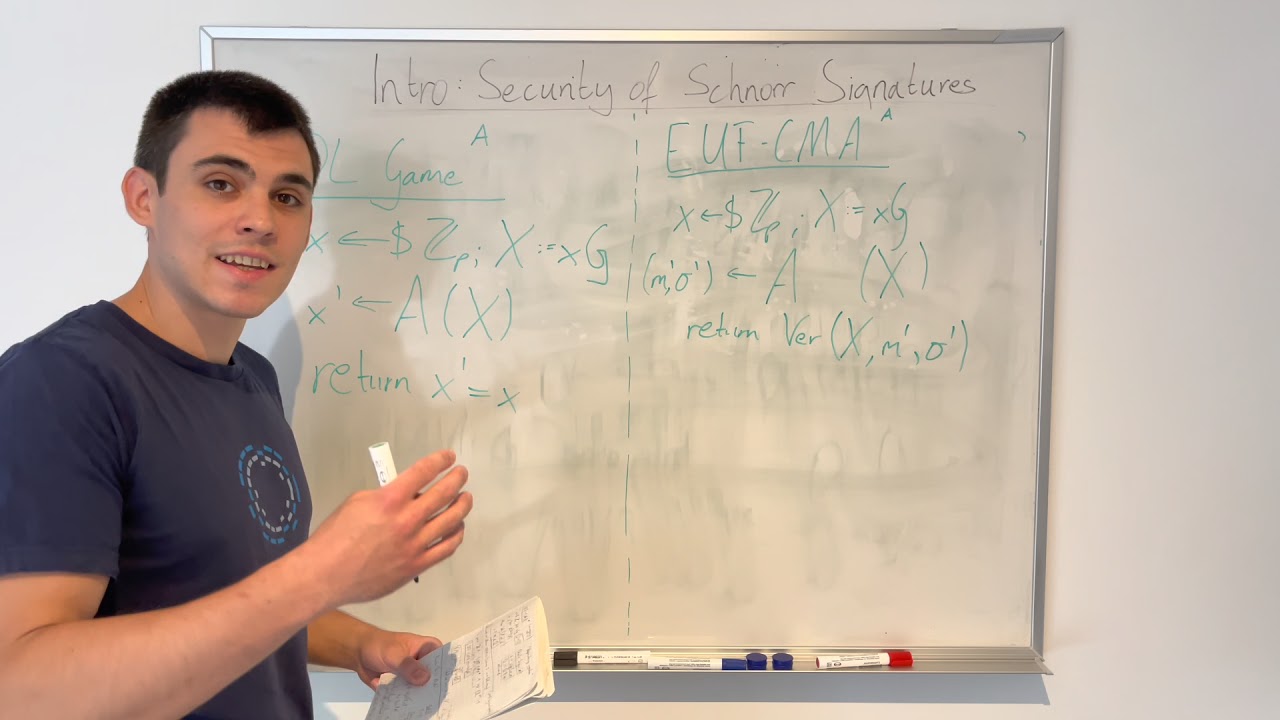 Intro: Security of Schnorr Signatures
DL Game A
x ←$ ℤp; X := xG
x' ← A(X)
return x' = x
EUF-CMA A
x ←$ ℤp; X := xG
(m',σ') ← A (X)
return Ver(X, m', σ')